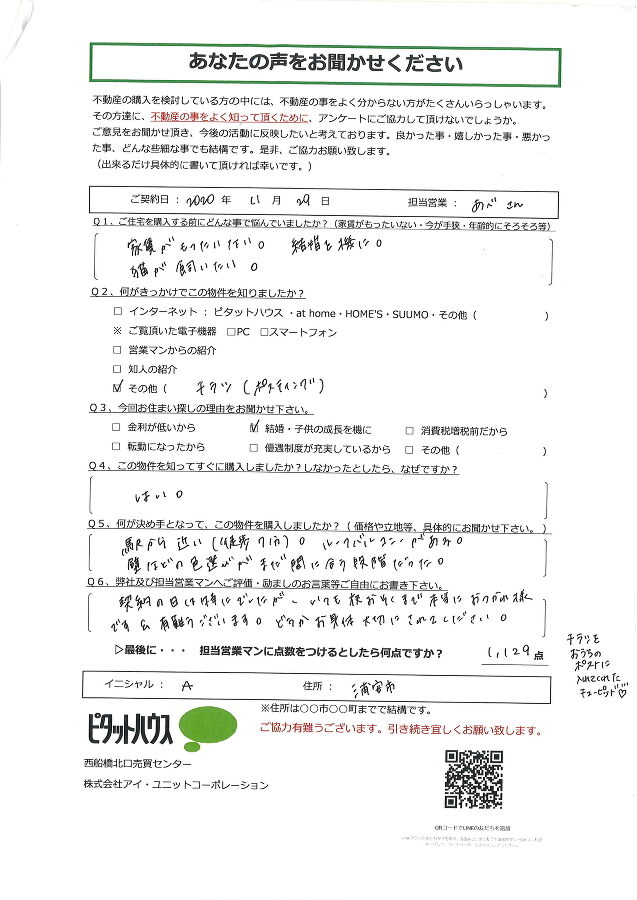 あなたの声をお聞かせください
不動産の購入を検討している方の中には、不動産の事をよく分からない方がたくさんいらっしゃいます。
その方達に、不動産の事をよく知って頂くために、アンケートにご協力して頂けないでしょうか。
ご意見をお聞かせ頂き、今後の活動に反映したいと考えております。良かった事・嬉しかった事・悪かっ
た事、どんな些細な事でも結構です。是非、ご協力お願い致します。
（出来るだけ具体的に書いて頂ければ幸いです。）
ご契約日：2020 年 11 月 29 日 担当営業： あべ さん
Q１、ご住宅を購入する前にどんな事で悩んでいましたか？（家賃がもったいない・今が手狭・年齢的にそろそろ等）
家賃がもったいない。 結婚を機に。
猫が飼いたい。
Q２、何がきっかけでこの物件を知りましたか？
□ インターネット ： ピタットハウス ・at home・HOME'S・SUUMO・その他（ ）
※ ご覧頂いた電子機器 □PC □スマートフォン
□ 営業マンからの紹介
□ 知人の紹介
☑ その他（ チラシ（ポスティング） ）
Q３、今回お住まい探しの理由をお聞かせ下さい。
□ 金利が低いから ☑ 結婚・子供の成長を機に □ 消費税増税前だから
□ 転勤になったから □ 優遇制度が充実しているから □ その他（ ）
Q４、この物件を知ってすぐに購入しましたか？しなかったとしたら、なぜですか？
はい。
Q５、何が決め手となって、この物件を購入しましたか？（ 価格や立地等、具体的にお聞かせ下さい。）
駅から近い（徒歩7分）。 ルーフバルコニーがある。
壁などの色選びがまだ間に合う段階だった。
Q６、弊社及び担当営業マンへご評価・励ましのお言葉等ご自由にお書き下さい。
契約の日は特にでしたが、いつも夜おそくまで本当におつかれ様
です＆有難うございます。どうかお身体大切にされてください。
▷最後に・・・ 担当営業マンに点数をつけるとしたら何点ですか？ 1,129 点
チラシを
おうちの
ポストに
入れてくれた
キューピッド♡
イニシャル： A 住所： 浦安市
※住所は〇〇市〇〇町までで結構です。
ピタットハウス
ご協力有難うございます。引き続き宜しくお願い致します。
西船橋北口売買センター
株式会社アイ・ユニットコーポレーション
QRコードでLINEの友だちを追加